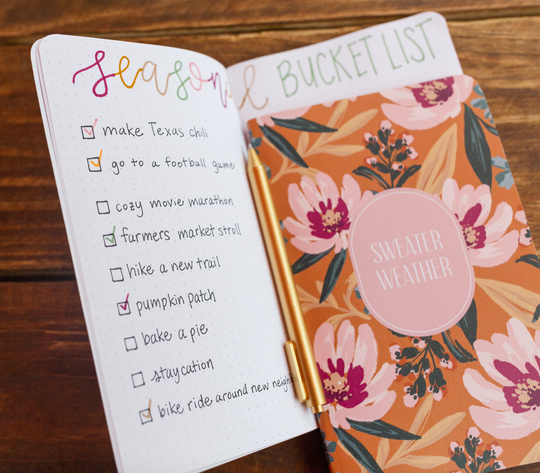 seasonal BUCKET LIST
make Texas chili
go to a football game
cozy movie marathon
farmers market stroll
hike a new trail
pumpkin patch
bake a pie
staycation
bike ride around new neigh
SWEATER
WEATHER